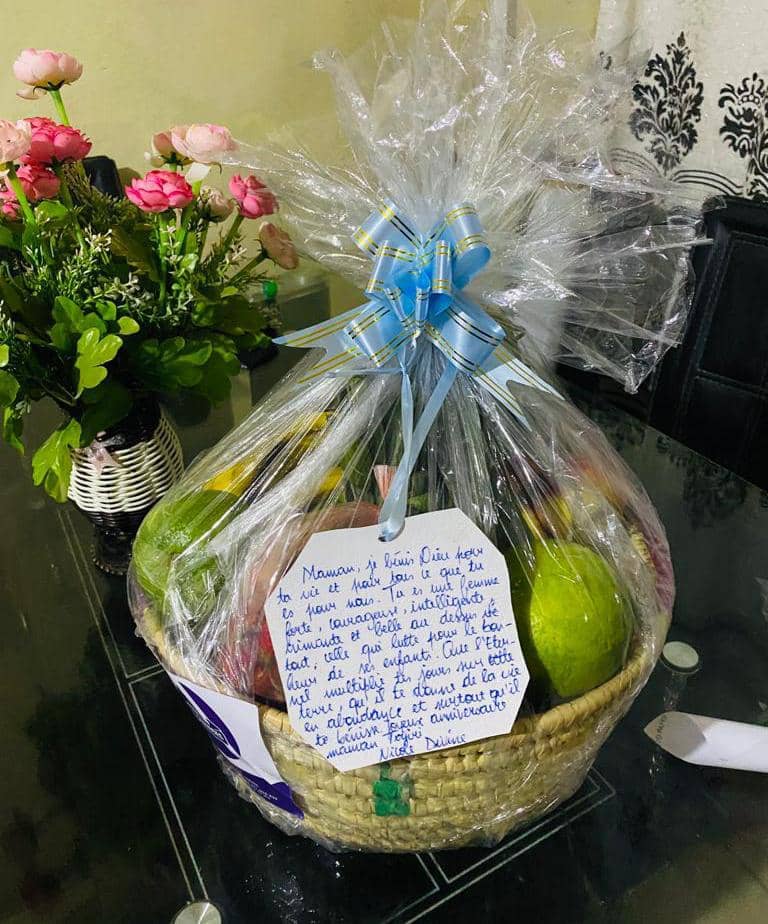 Maman, je bénis Dieu pour
ta vie et pour tous ce que tu
es pour nous. Tu es une femme
forte, courageuse, intelligente,
et belle au dessus de
tout, celle qui lutte pour le bon-
heur de ses enfants. Que l'Eter-
nel multiplie tes jours sur cette
terre, qu'il te donne de la vie
en abondance et surtout qu'il
te bénisse Joyeux anniversaire
maman
Nicole Divine